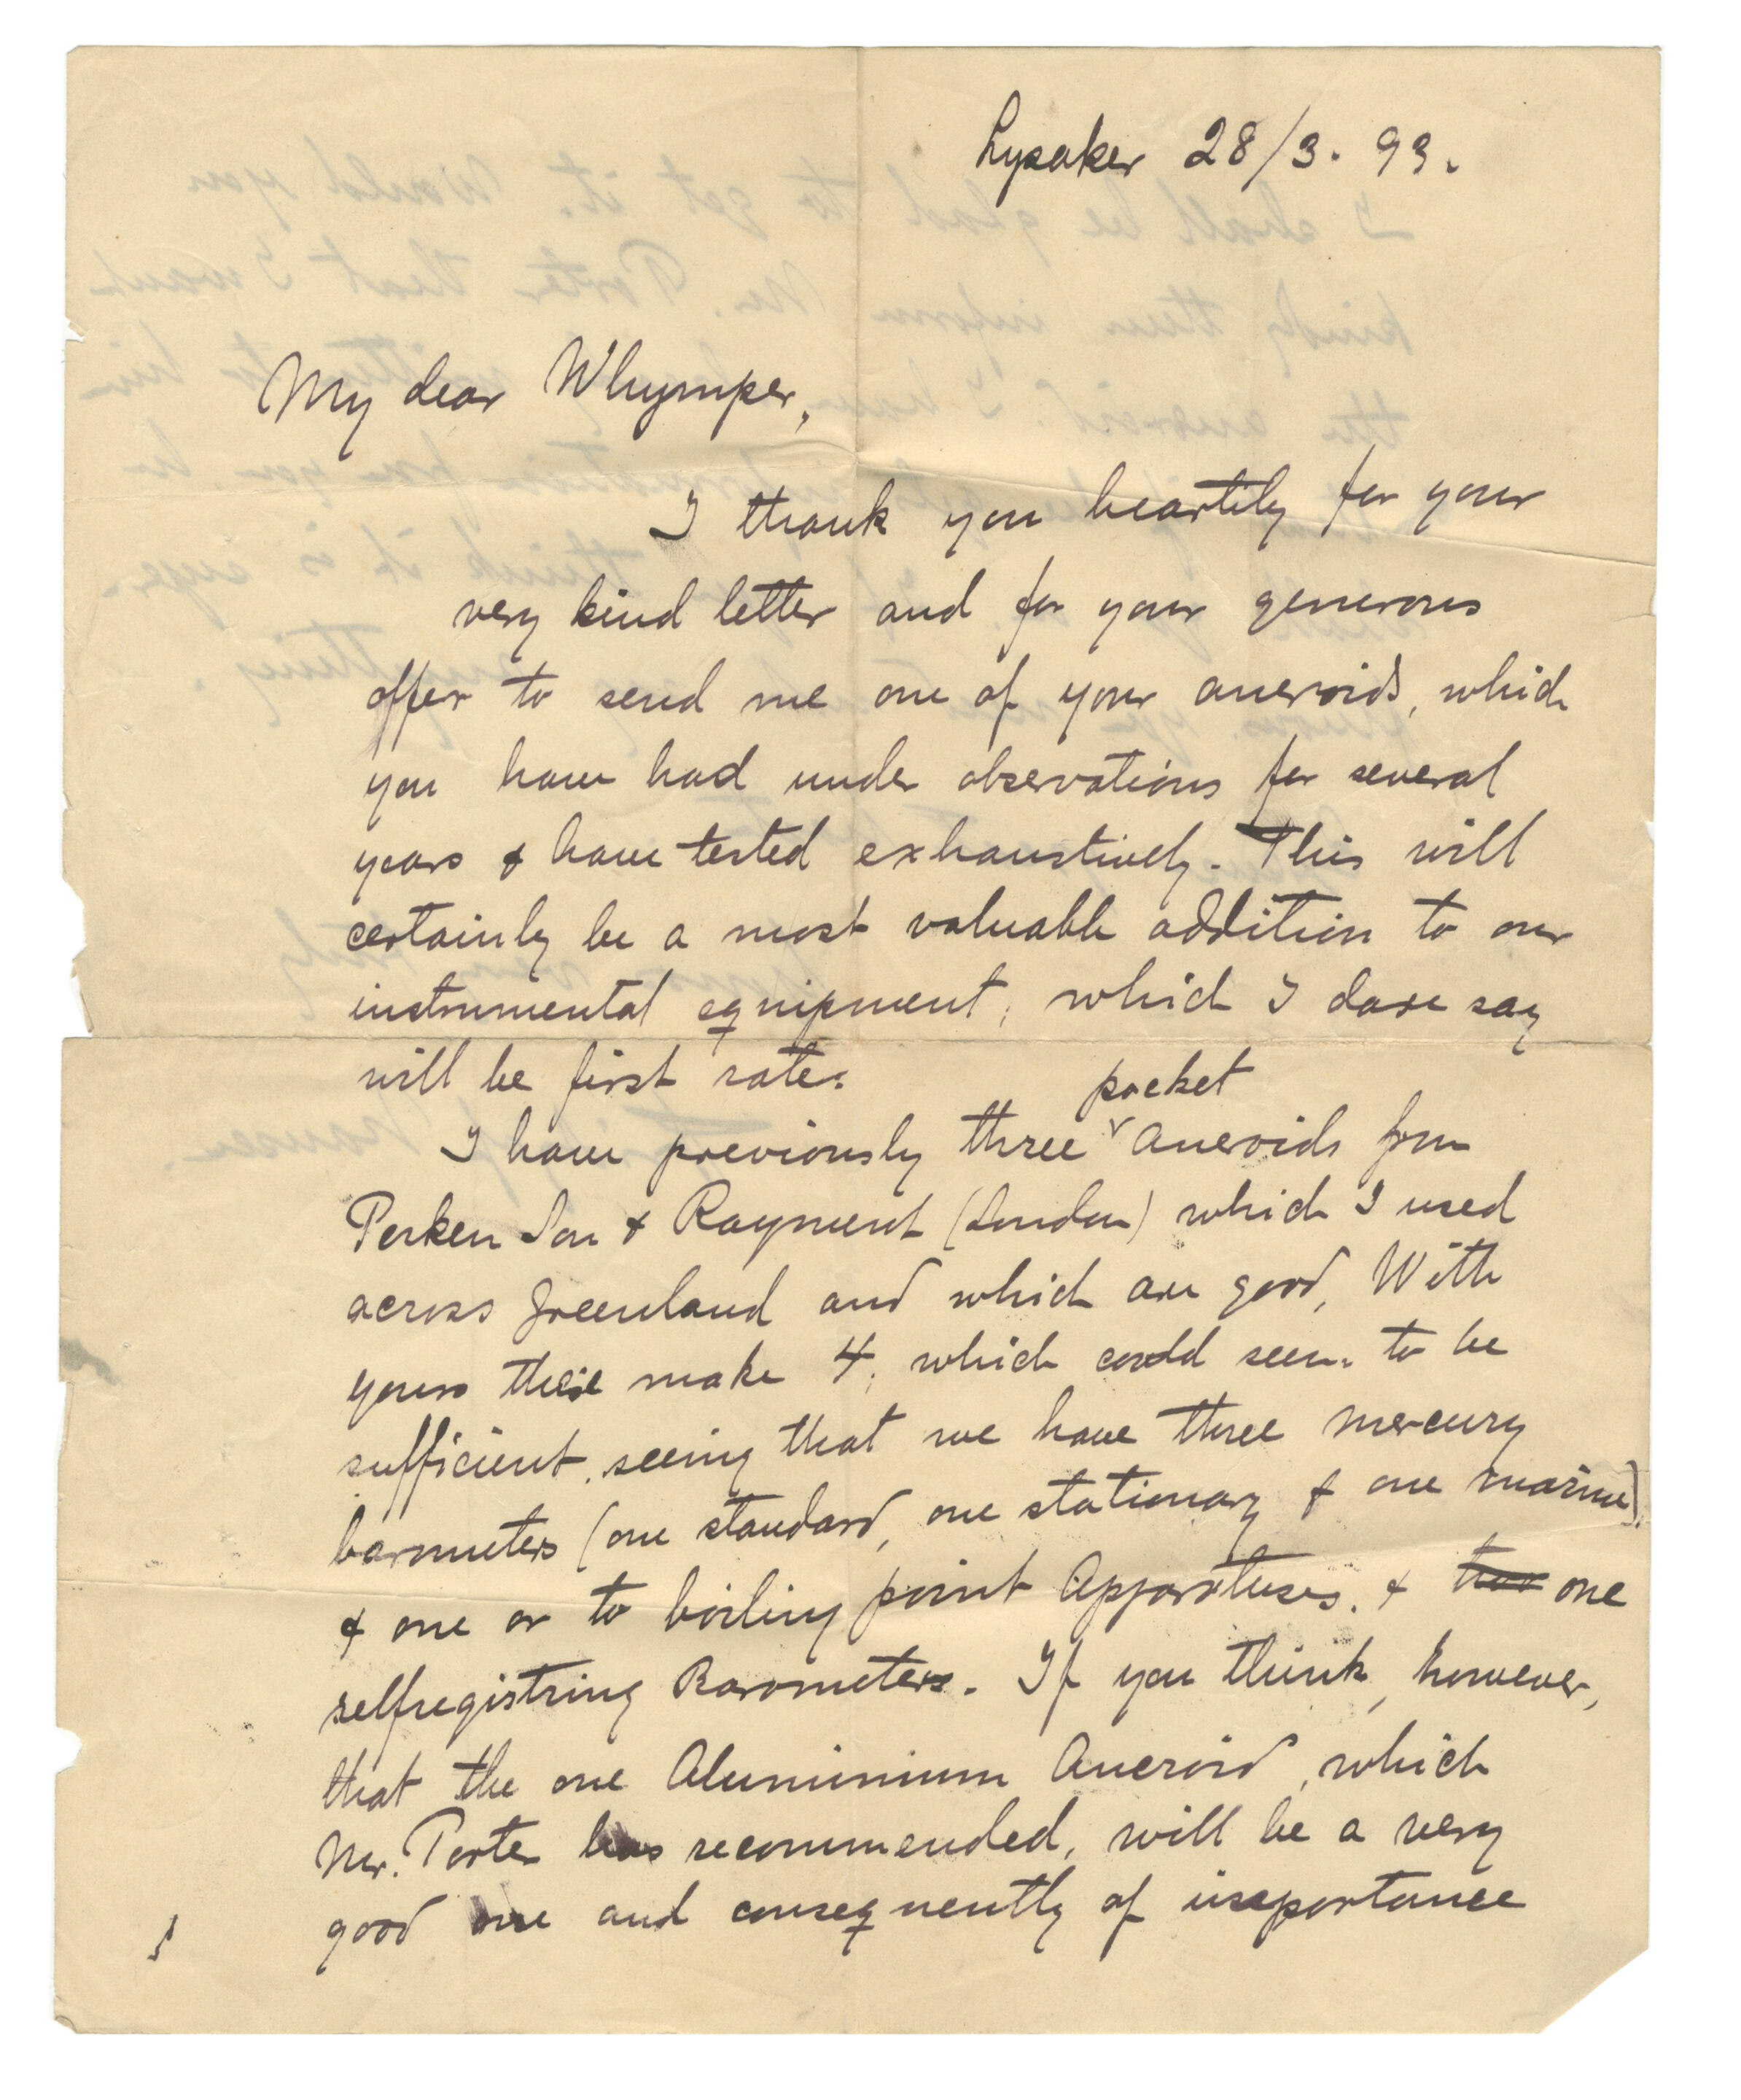 Lysaker 28/3. 93.
My dear Whymper,
I thank you heartily for your
very kind letter and for your generous
offer to send me one of your aneroids, which
you have had under observations for several
years & have tested exhaustively. This will
certainly be a most valuable addition to our
instrumental equipment, which I dare say
will be first rate.
pocket
I have previously three aneroids from
Perken Son & Rayment (London) which I used
across Greenland and which are good, With
yours these make 4, which could seem to be
sufficient, seeing that we have three mercury
barometers (one standard, one stationary & one marine),
& one or to boiling point Apparatuses. & two one
selfregistring Barometers. If you think, however,
that the one Aluminium Aneroid, which
Mr. Porter has recommended, will be a very
good one and consequently of importance